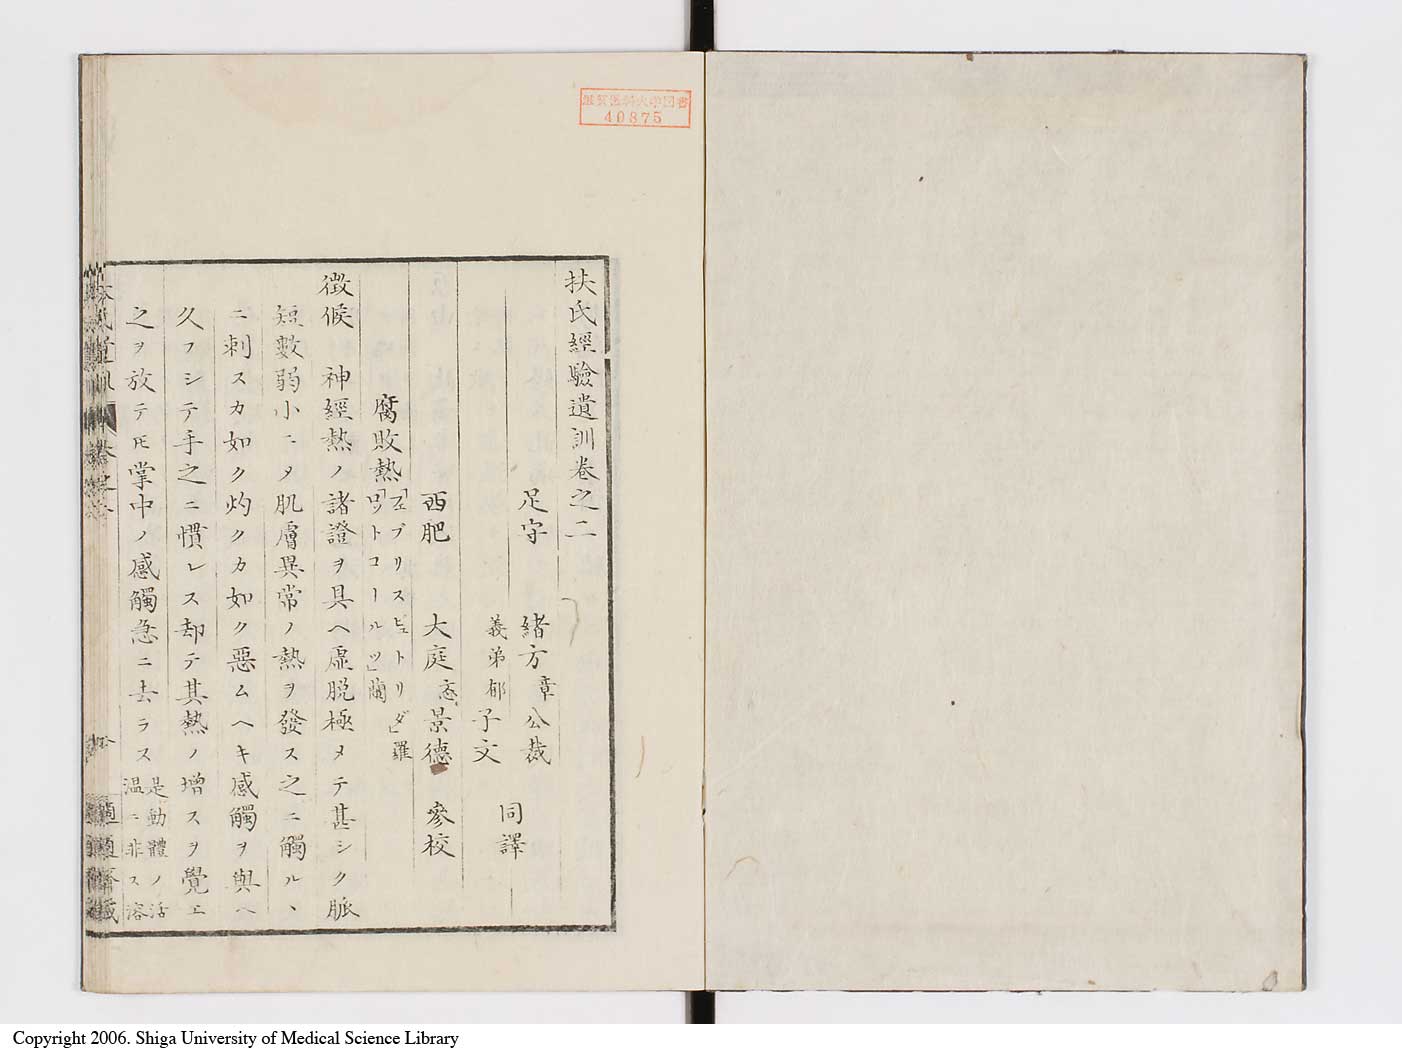 滋賀医科大学図書
40875
扶氏經驗遺訓卷之二
足守 緒方章公裁
義弟郁子文 同譯
西肥 大庭忞景德 參校
腐敗熱「フェブリスピュトリダ」羅
「ロットコールツ」蘭
徴候 神經熱ノ諸證ヲ具ヘ虚脱極メテ甚シク脈
短數弱小ニメ肌膚異常ノ熱ヲ發ス之ニ觸ルヽ
ニ刺スカ如ク灼クカ如ク惡ムヘキ感觸ヲ與ヘ
久フシテ手之ニ慣レス却テ其熱ノ増スヲ覺エ
之ヲ放テ𪜈掌中ノ感觸急ニ去ラス是動體ノ活
温ニ非ス溶
Copyright 2006. Shiga University of Medical Science Library